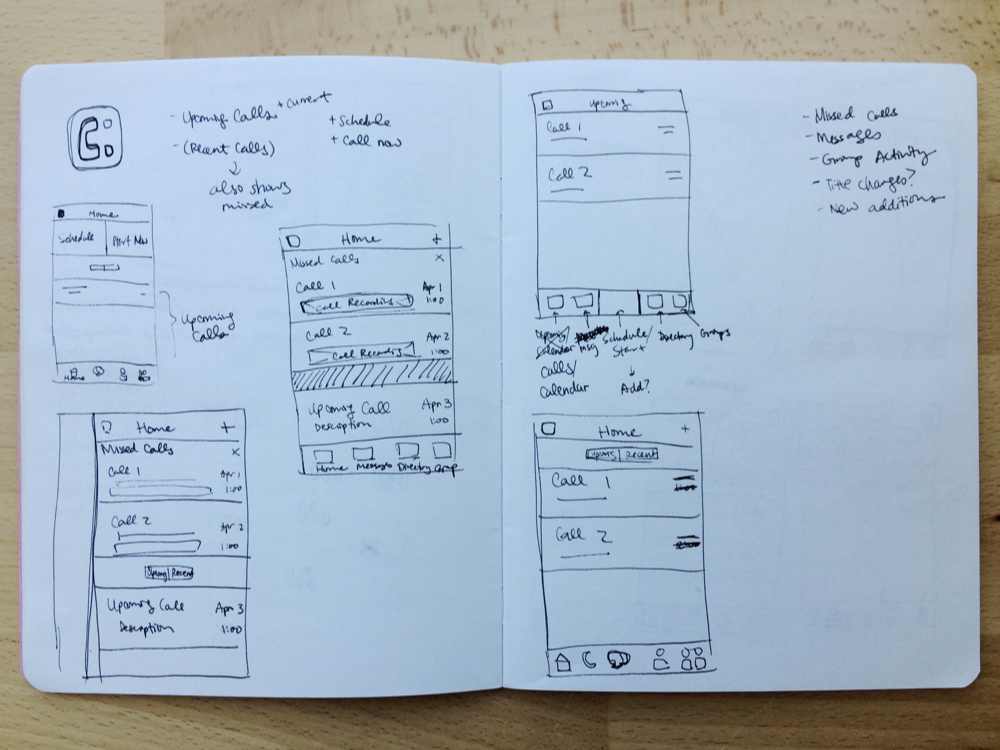 - Upcoming Calls + current
- (Recent Calls)
also shows
missed
+ Schedule
+ Call now
Home
Schedule
Start Now
Upcoming
Calls
Home
Home
+
Missed Calls
x
Call 1
Apr 1
1:00
Call Recording
Call 2
Apr 2
1:00
Call Recording
Upcoming Call
Apr 3
Description
1:00
Home
Messages
Directory
Group
Home
+
Missed Calls
x
Call 1
Apr 1
1:00
Call 2
Apr 2
1:00
Upcoming | Recent
Upcoming Call
Apr 3
Description
1:00
Upcoming
Call 1
Call 2
Upcoming/
Calendar
Msg
Schedule/
Start
Directory
Groups
Calls/
Calendar
Add?
Home
+
Upcoming | Recent
Call 1
Call 2
- Missed Calls
- Messages
- Group Activity
- Title changes?
- New additions